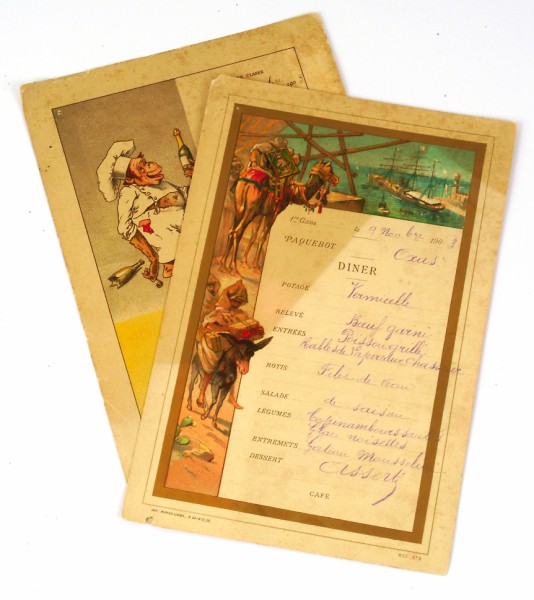 1re Classe le 9 Novbre 1903
PAQUEBOT Oxus
DINER
POTAGE Vermicelle
RELEVÉ Bœuf garni
ENTRÉES Poisson grillé
Rables de Lapereau Chasseur
ROTIS Filet de veau
SALADE de saison
LÉGUMES Topinambours sautés
Eau noisettes
ENTREMETS Gateau Mousseline
DESSERT Assorti
CAFÉ